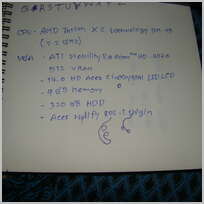 Q R S T U V W X Y Z
CPU - AMD Turion X2 Technology
VGA - ATI Mobility Radeon™ HD
512 VRam
- 14.0 HD Acer CineCrystal LED LCD
- Memory
- 320 GB HDD
- Acer Nplify 802.11